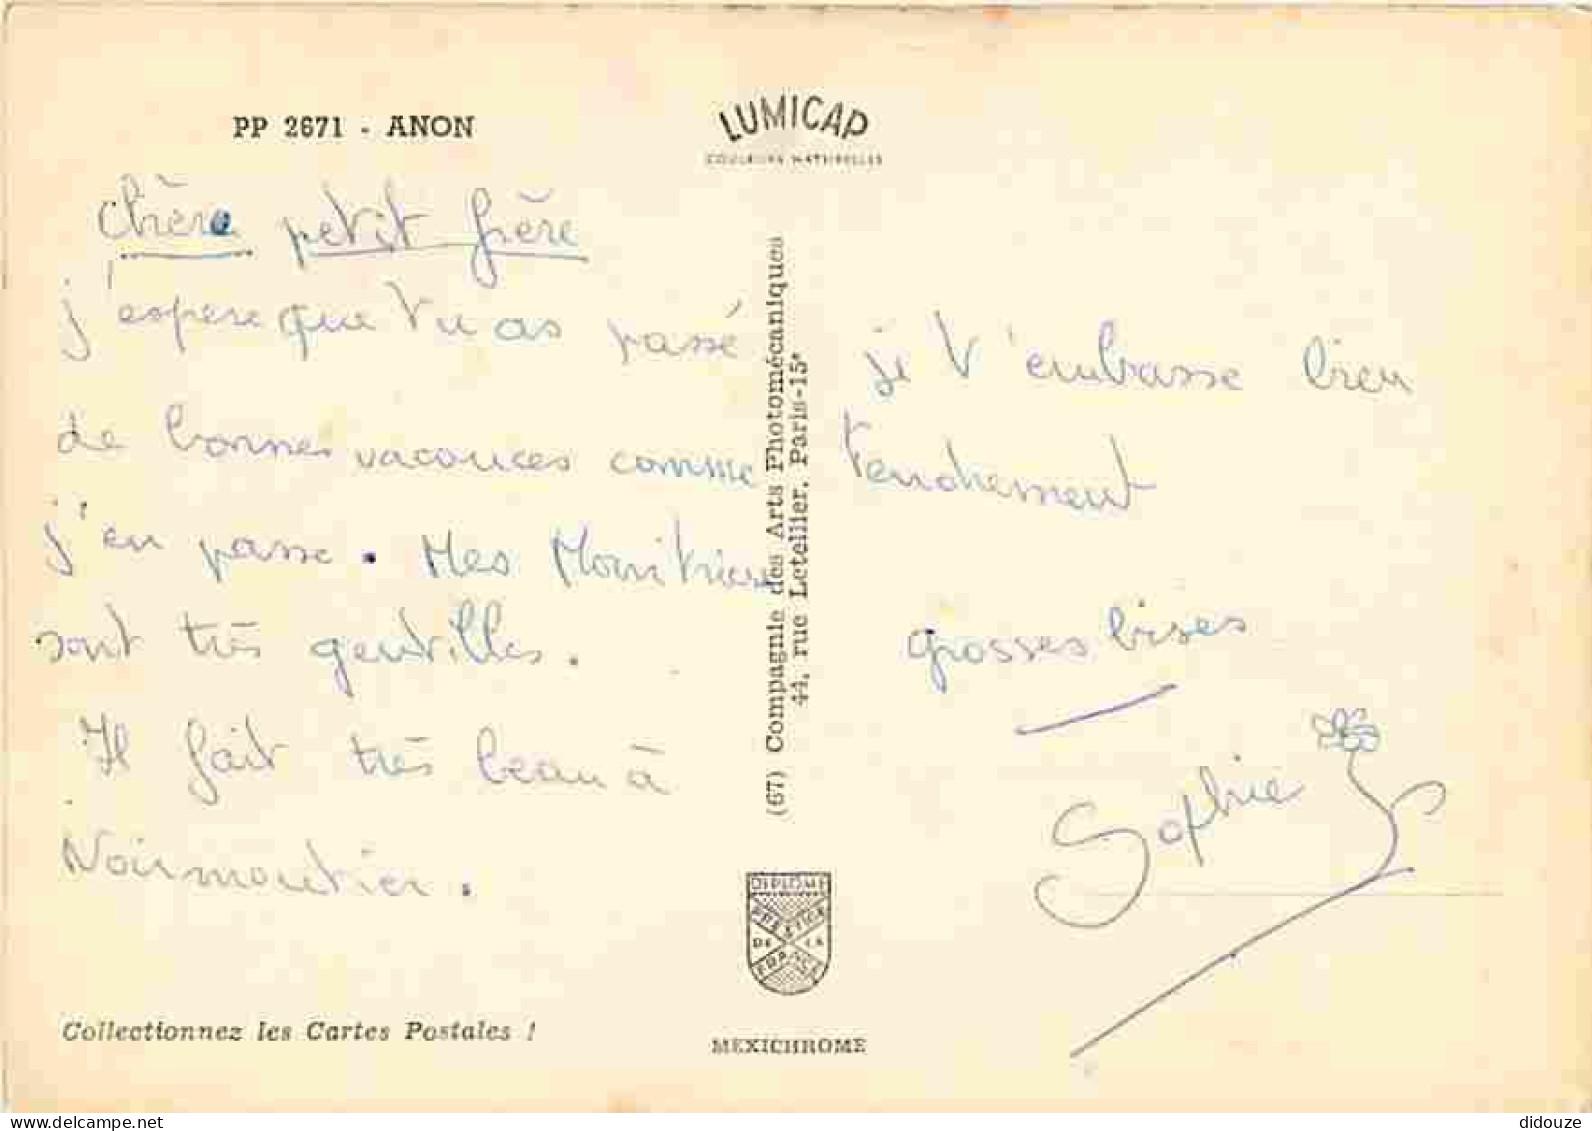 PP 2671 - ANON
LUMICAP
COULEURS NATURELLES
Chère petit frère
j'espere que tu as passé
de bonnes vacances comme
j'en passe. Mes Monitrices
sont très gentilles.
Il fait très beau à
Noirmoutier.
Collectionnez les Cartes Postales !
(67) Compagnie des Arts Photomécaniques
44, rue Letellier, Paris-15e
DIPLOME
PRESTIGE
DE LA
FRANCE
MEXICHROME
je t'embrasse bien
tendrement
grosses bises
Sophie
delcampe.net
didouze